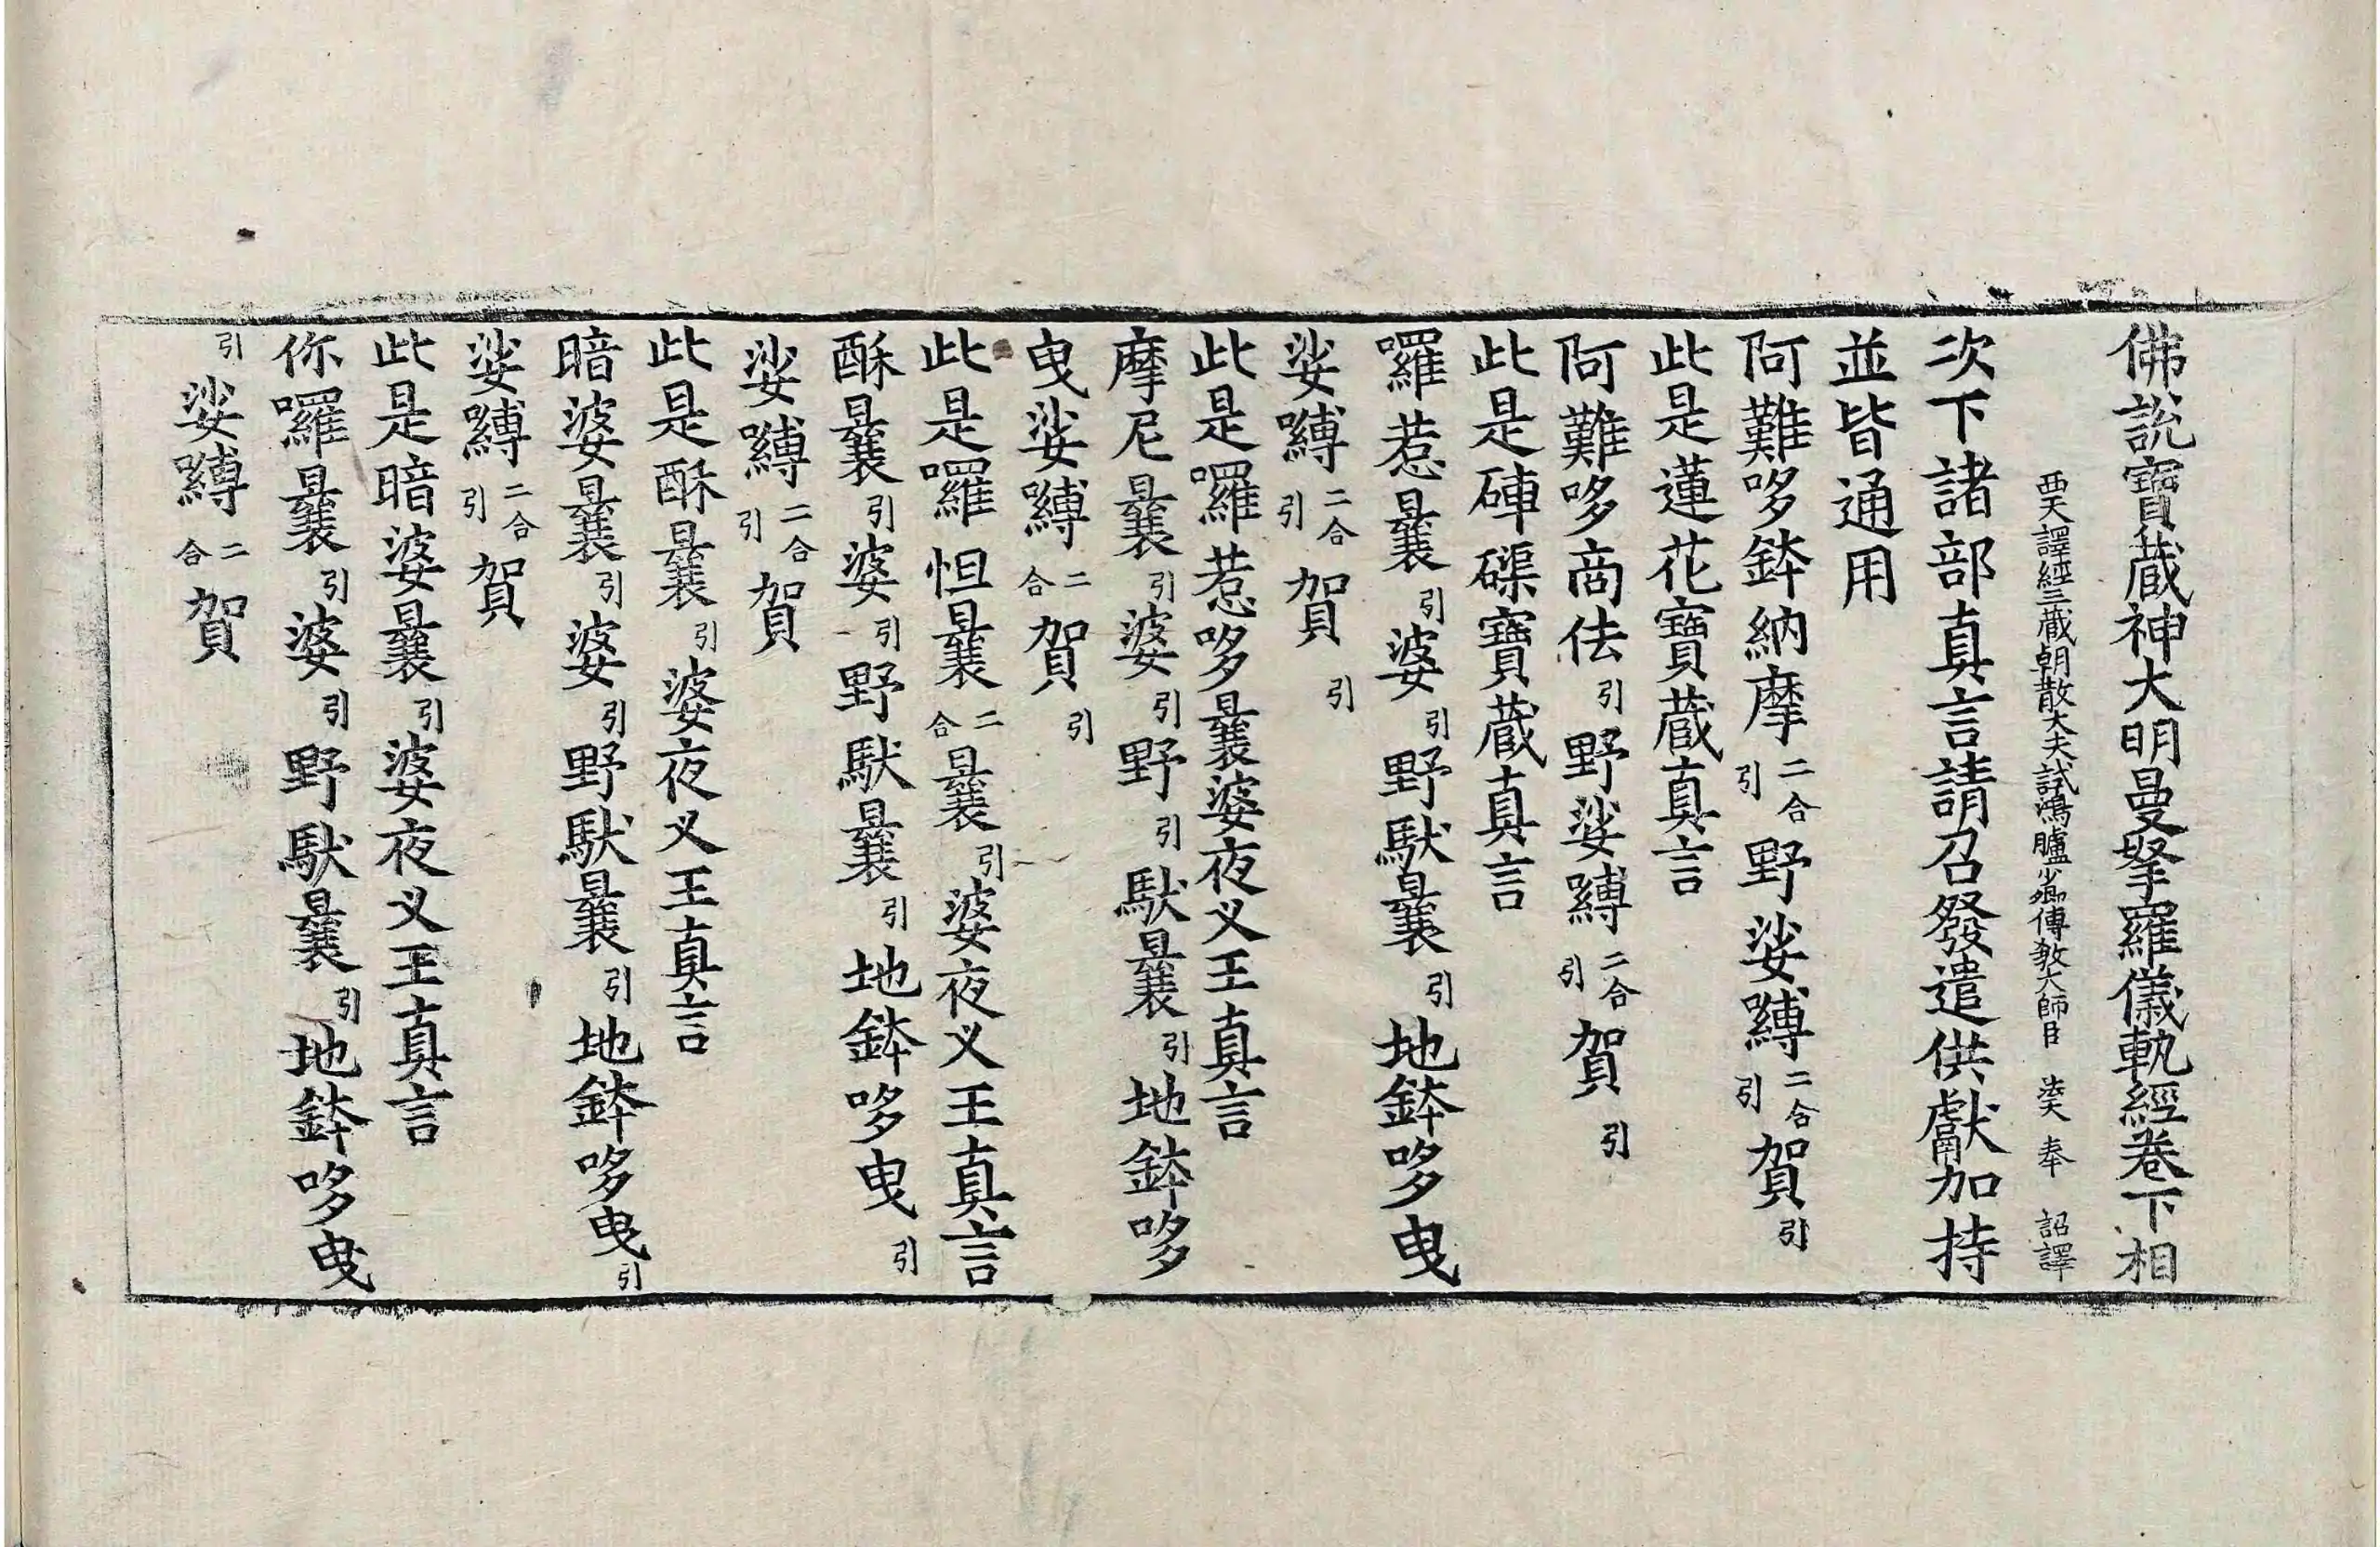 佛說寶藏神大明曼拏羅儀軌經卷下相
西天譯經三藏朝散大夫試鴻臚少卿傳教大師臣 法天 奉 詔譯
次下諸部真言請召發遣供獻加持
並皆通用
阿難哆鉢納摩二合引野娑嚩二合引賀引
此是蓮花寶藏真言
阿難哆商佉引野娑嚩二合引賀引
此是硨磲寶藏真言
囉惹曩引婆引野馱曩引地鉢哆曳
娑嚩二合引賀引
此是囉惹哆曩婆夜叉王真言
摩尼曩引婆引野引馱曩引地鉢哆
曳娑嚩二合賀引
此是囉怛曩二合曩引婆夜叉王真言
酥曩引婆引野馱曩引地鉢哆曳引
娑嚩二合引賀
此是酥曩引婆夜叉王真言
暗婆曩引婆引野馱曩引地鉢哆曳引
娑嚩二合引賀
此是暗婆曩引婆夜叉王真言
你囉曩引婆引野馱曩引地鉢哆曳
引娑嚩二合賀